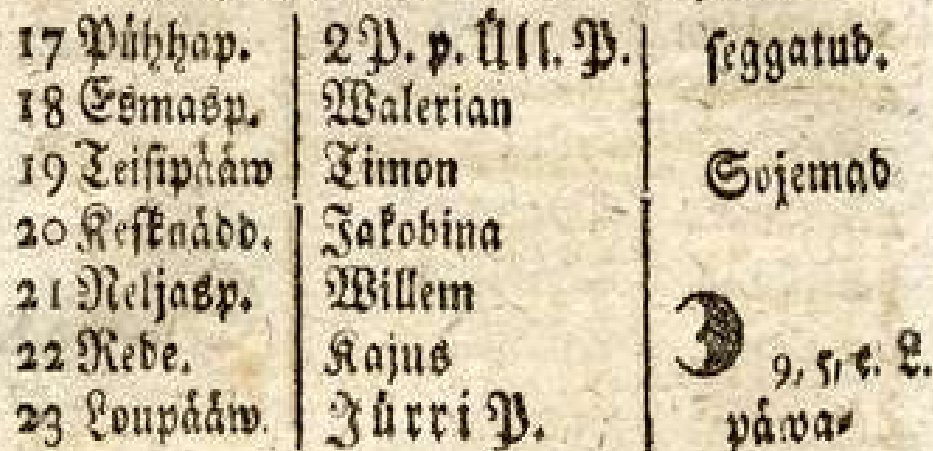 17 Pühhap. 2 P. p. Üll. P. seggatud.
18 Esmasp. Walerian
19 Teisipääw Timon Sojemad
20 Kesknädd. Jakobina
21 Neljasp. Willem
22 Rede. Kajus 9, k. L.
23 Loupääw. Jürri P. päwa-